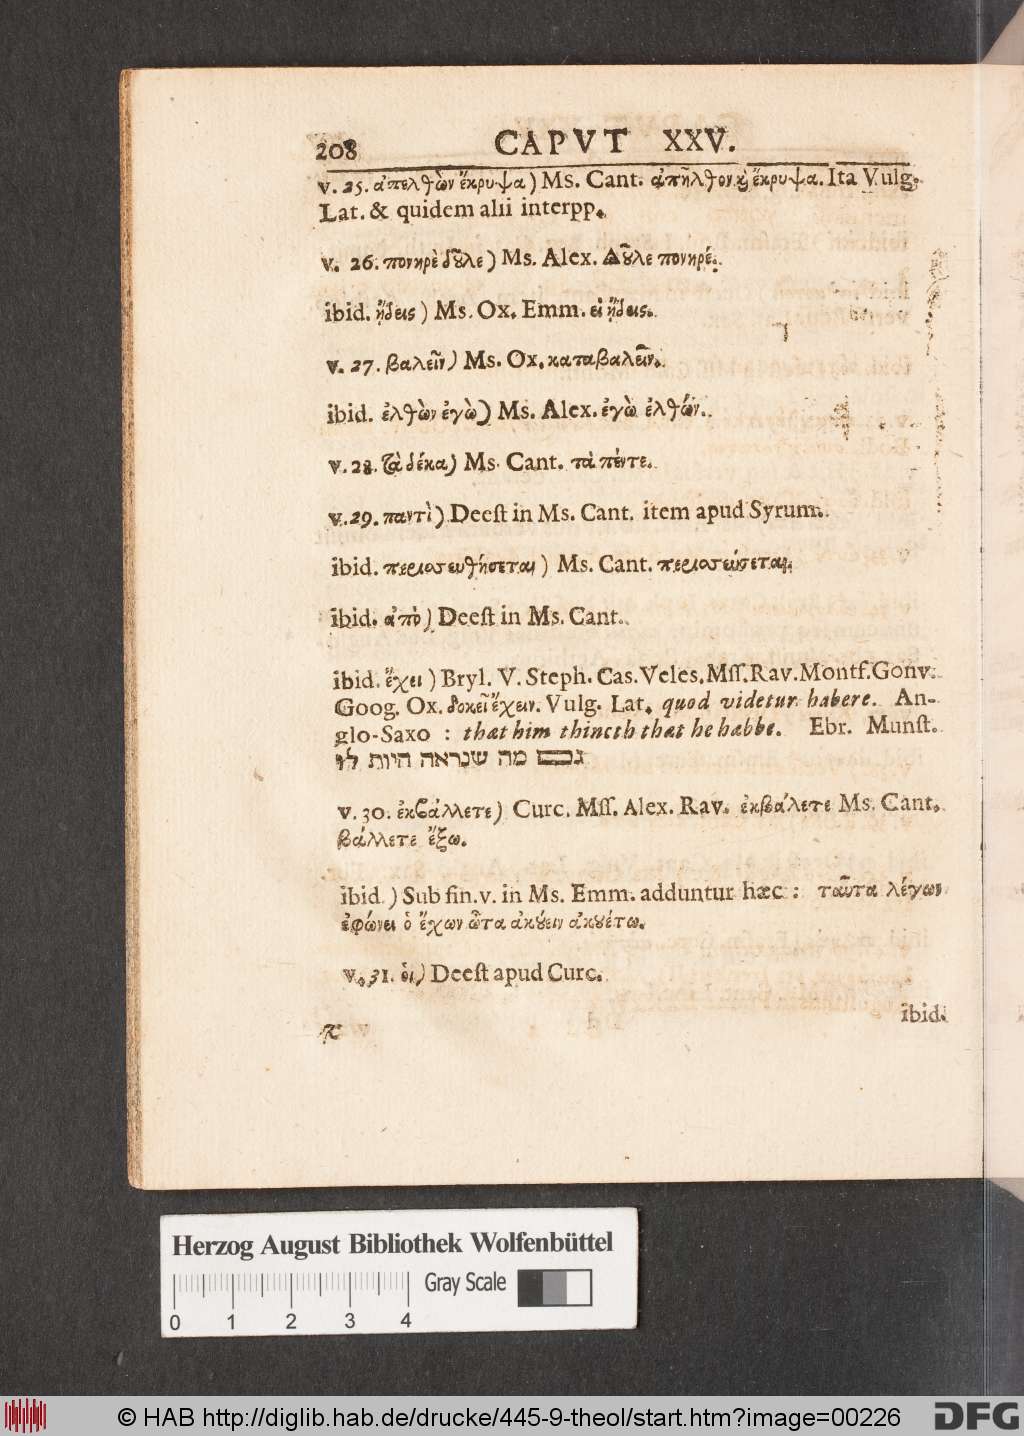 208 CAPVT XXV.
v. 25. ἀπελθὼν ἔκρυψα) Ms. Cant. ἀπῆλθον κ̀ ἔκρυψα. Ita Vulg.
Lat. & quidem alii interpp.
v. 26. πονηρὲ δοῦλε) Ms. Alex. Δοῦλε πονηρέ.
ibid. ᾔδεις) Ms. Ox. Emm. εἰ ᾔδεις.
v. 27. βαλεῖν) Ms. Ox. καταβαλεῖν.
ibid. ἐλθὼν ἐγὼ) Ms. Alex. ἐγὼ ἐλθών.
v. 28. τὰ δέκα) Ms. Cant. τὰ πέντε.
v. 29. παντὶ) Deeſt in Ms. Cant. item apud Syrum.
ibid. περισσευθήσεται) Ms. Cant. περισσεύσεται.
ibid. ἀπὸ) Deeſt in Ms. Cant.
ibid. ἔχει) Bryl. V. Steph. Cas. Veles. Mſſ. Rav. Montf. Gonv.
Goog. Ox. δοκεῖ ἔχειν. Vulg. Lat. quod videtur habere. An-
glo-Saxo : that him thincth that he habbe. Ebr. Munſt.
גם מה שנראה היות לו
v. 30. ἐκβάλλετε) Curc. Mſſ. Alex. Rav. ἐκβάλετε Ms. Cant.
βάλλετε ἔξω.
ibid.) Sub fin. v. in Ms. Emm. adduntur hæc : ταῦτα λέγων
ἐφώνει ὁ ἔχων ὦτα ἀκούειν ἀκουέτω.
v. 31. οἱ) Deeſt apud Curc.
ibid.
Herzog August Bibliothek Wolfenbüttel
Gray Scale
0 1 2 3 4
© HAB http://diglib.hab.de/drucke/445-9-theol/start.htm?image=00226
DFG